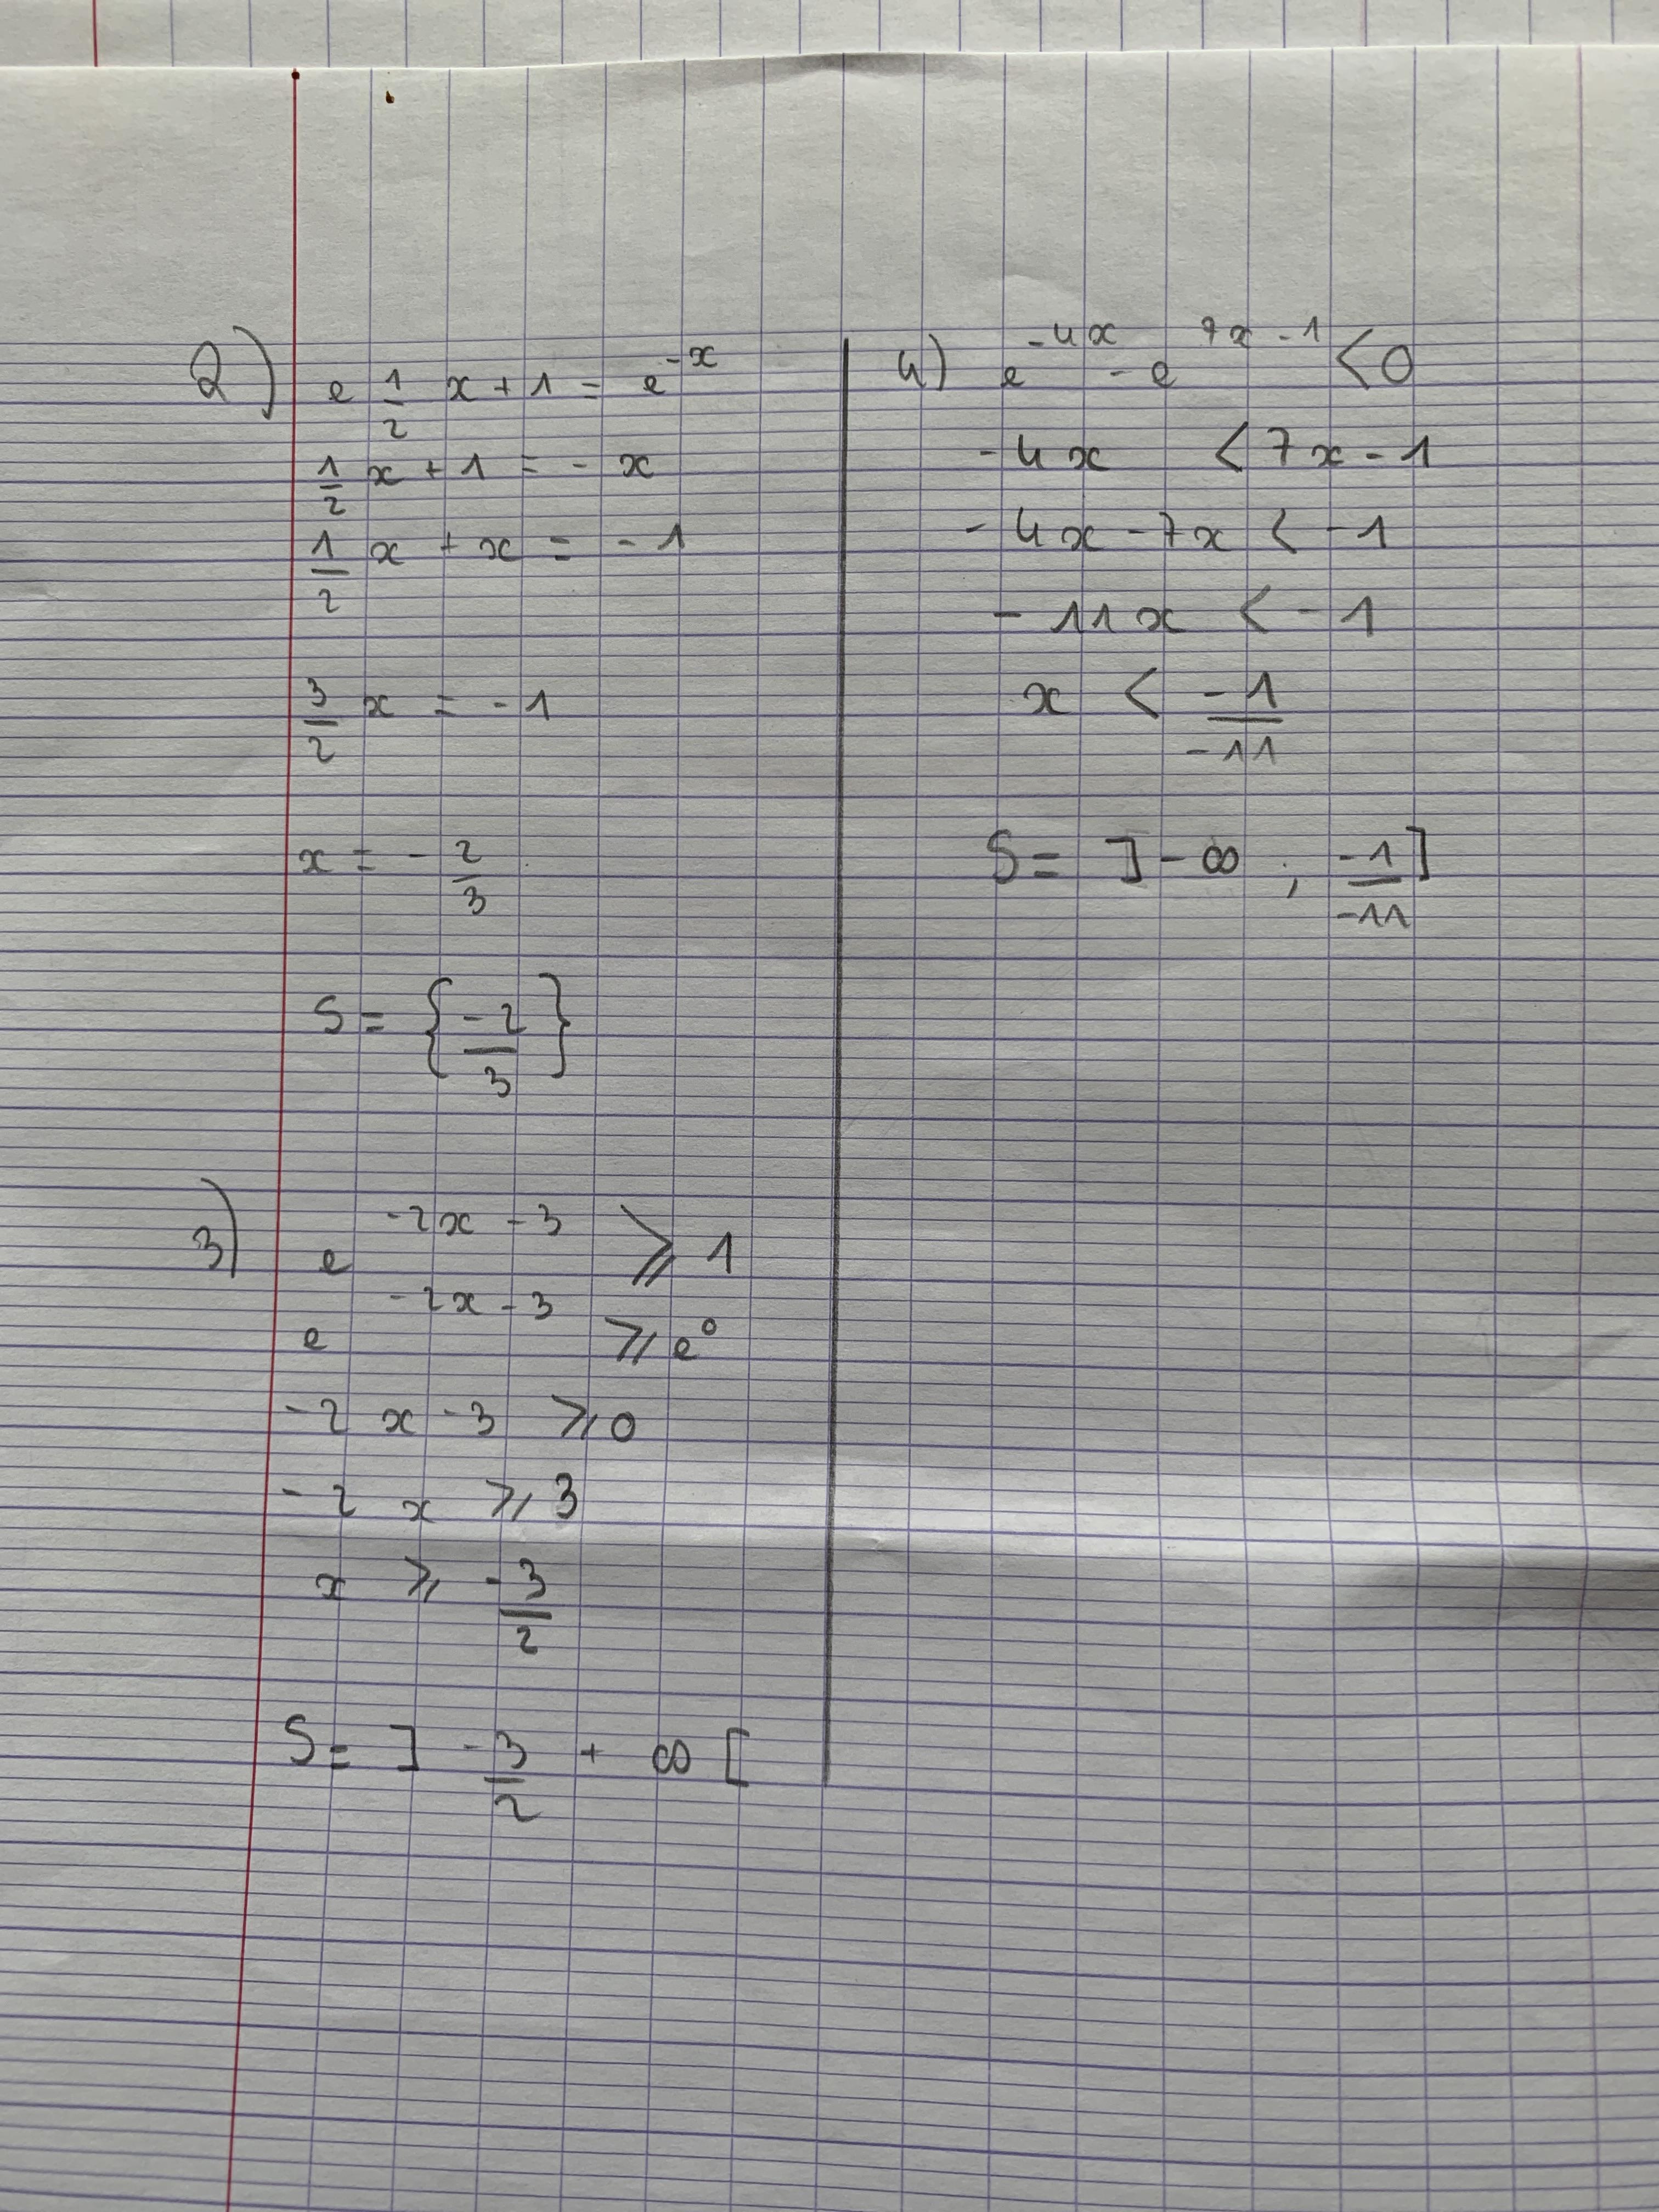 2) e 1/2 x + 1 = e^-x
1/2 x + 1 = - x
1/2 x + x = - 1
3/2 x = - 1
x = - 2/3
S = { -2/3 }
3) e^-2x - 3 ⩾ 1
e^-2x - 3 ⩾ e^0
-2 x - 3 ⩾ 0
-2 x ⩾ 3
x ⩾ -3/2
S = ] -3/2 + ∞ [
4) e^-4x - e^7x - 1 < 0
-4x < 7x - 1
- 4x - 7x < -1
- 11x < - 1
x < -1/-11
S = ] - ∞ ; -1/-11 ]